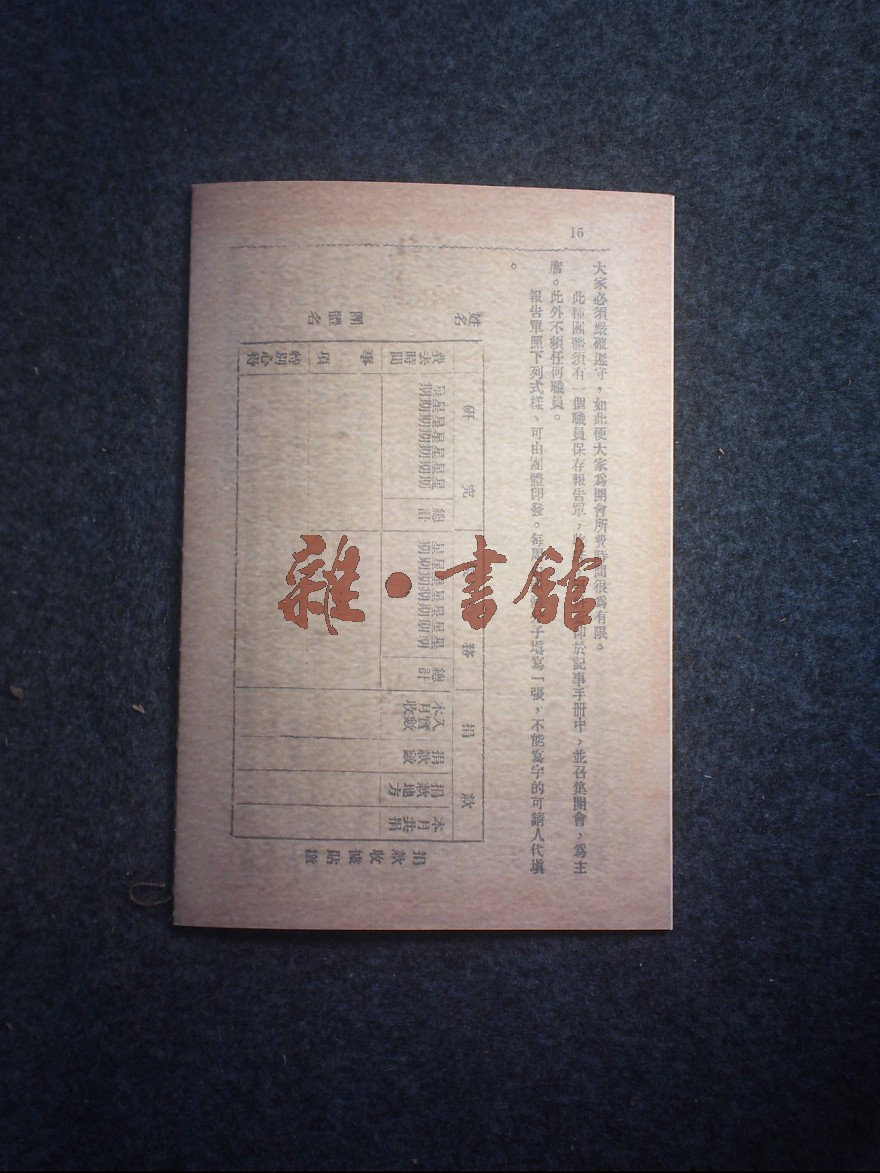 16
大家必須嚴確遵守，如此便大家爲開會所費時間很爲有限。
此種團體須有一個職員保存報告單，於記事手册中，並召集開會，爲主
席。此外不須任何職員。
報告單照下列式樣、可由團體印發。每填寫一張，不能寫字的可請人代填
。
姓名
團體名
研究
務
捐款
費去時間
星期星期星期星期星期星期星期
總計
星期星期星期星期星期星期星期
總計
本月實收入數
捐款數
捐款地方
本月共捐
事項
特別心得
捐款收據貼
雜·書館